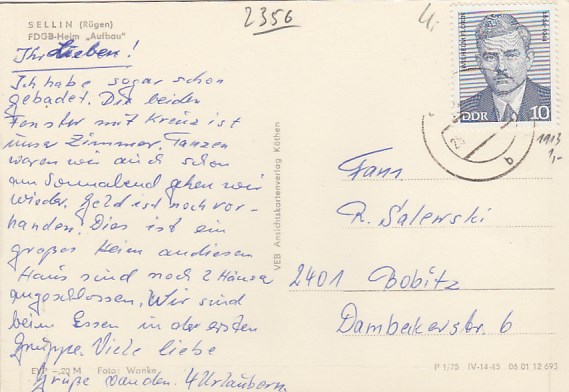 2356
SELLIN (Rügen)
FDGB-Heim „Aufbau"
Ihr Lieben!
Ich habe sogar schon
gebadet. Die beiden
Fenster mit Kreuz ist
unser Zimmer. Tanzen
waren wir auch schon
am Sonnabend gehen wir
wieder. Geld ist noch vor-
handen. Dies ist ein
großes Heim an diesen
Haus sind noch 2 Häuser
angeschlossen. Wir sind
beim Essen in der ersten
Gruppe. Viele liebe
Grüße von den 4 Urlaubern
EVP –,20 M Foto: Wanke
VEB Ansichtskartenverlag Köthen
DDR 10
1913
1,-
Frau
R. Salewski
2401 Bobitz
Dambeckerstr. 6
P 1/75 IV-14-45 06 01 12 693